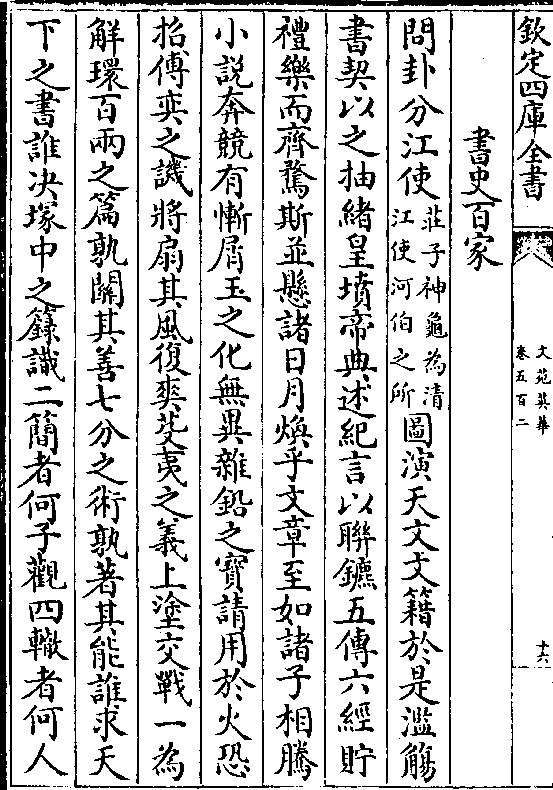 欽定四庫全書
文苑英華
卷五百二
十六
書史百家
問卦分江使莊子神龜為清江使河伯之所圖演天文文籍於是濫觴
書契以之抽緒皇墳帝典述紀言以聯鑣五傳六經貯
禮樂而齊騖斯並懸諸日月煥乎文章至如諸子相騰
小說奔競有慚屑玉之化無異雜鉛之寳請用於火恐
招傅奕之譏將扇其風復爽芟夷之義上塗交戰一為
解環百兩之篇孰闗其善七分之術孰著其能誰求天
下之書誰决塜中之籙識二簡者何子觀四轍者何人